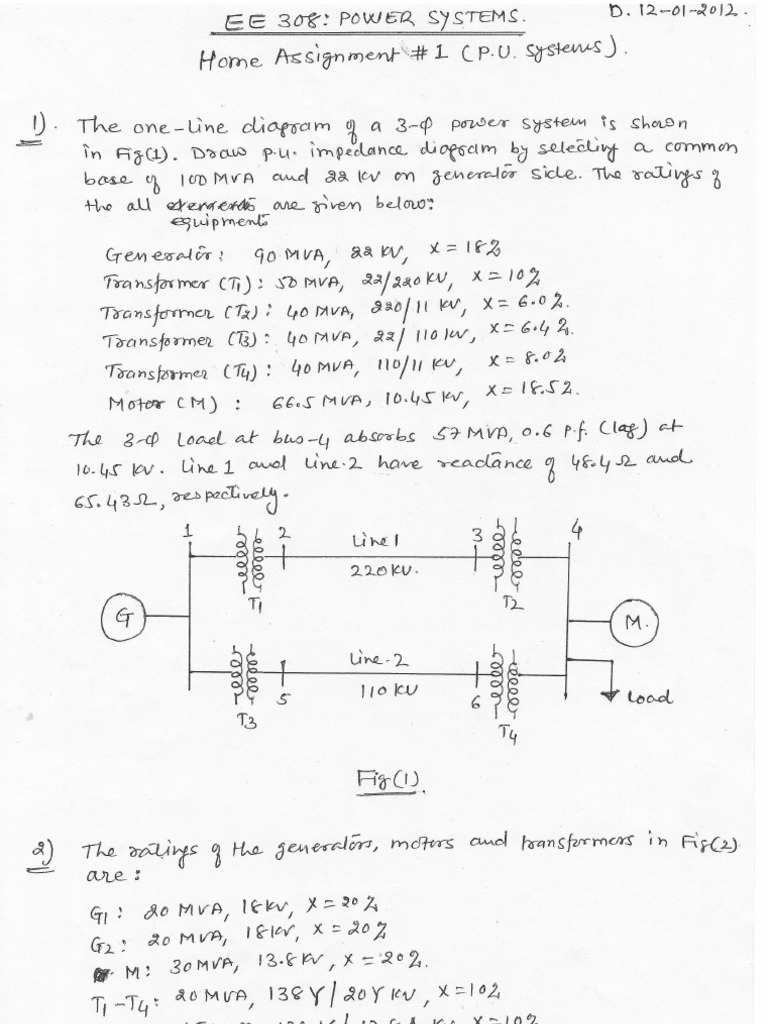 EE 308: POWER SYSTEMS.
D. 12-01-2012.
Home Assignment #1 (P.U. systems).
1). The one-line diagram of a 3-φ power system is shown
in Fig(1). Draw p.u. impedance diagram by selecting a common
base of 100 MVA and 22 KV on generator side. The ratings of
the all are given below:
equipments
Generator: 90 MVA, 22 KV, X = 18%
Transformer (T1): 50 MVA, 22/220 KV, X = 10%
Transformer (T2): 40 MVA, 220/11 KV, X = 6.0%.
Transformer (T3): 40 MVA, 22/110 KV, X = 6.4%.
Transformer (T4): 40 MVA, 110/11 KV, X = 8.0%
Motor (M) : 66.5 MVA, 10.45 KV, X = 18.5%.
The 3-φ Load at bus-4 absorbs 57 MVA, 0.6 p.f. (lag) at
10.45 KV. Line 1 and Line-2 have reactance of 48.4Ω and
65.43Ω, respectively.
1 2 Line 1 3 4
220 KV.
T1 T2
G M.
Line-2
110 KV
5 6 Load
T3 T4
Fig(1).
2) The ratings of the generators, motors and transformers in Fig(2)
are:
G1: 20 MVA, 18 KV, X = 20%
G2: 20 MVA, 18 KV, X = 20%
M: 30 MVA, 13.8 KV, X = 20%.
T1-T4: 20 MVA, 138Y/20Y KV, X = 10%
X = 10%